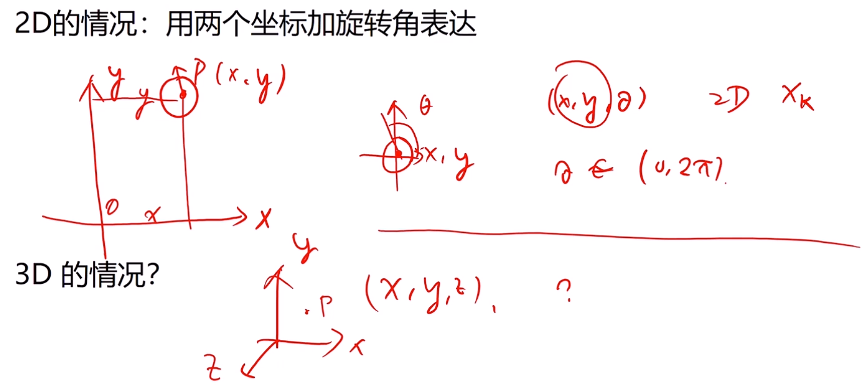 2D的情况：用两个坐标加旋转角表达
y
y
P (x, y)
O
x
X
θ
x, y
(x, y, θ) 2D Xk
θ ∈ (0, 2π)
3D 的情况？
y
P
x
Z
(x, y, z), ?